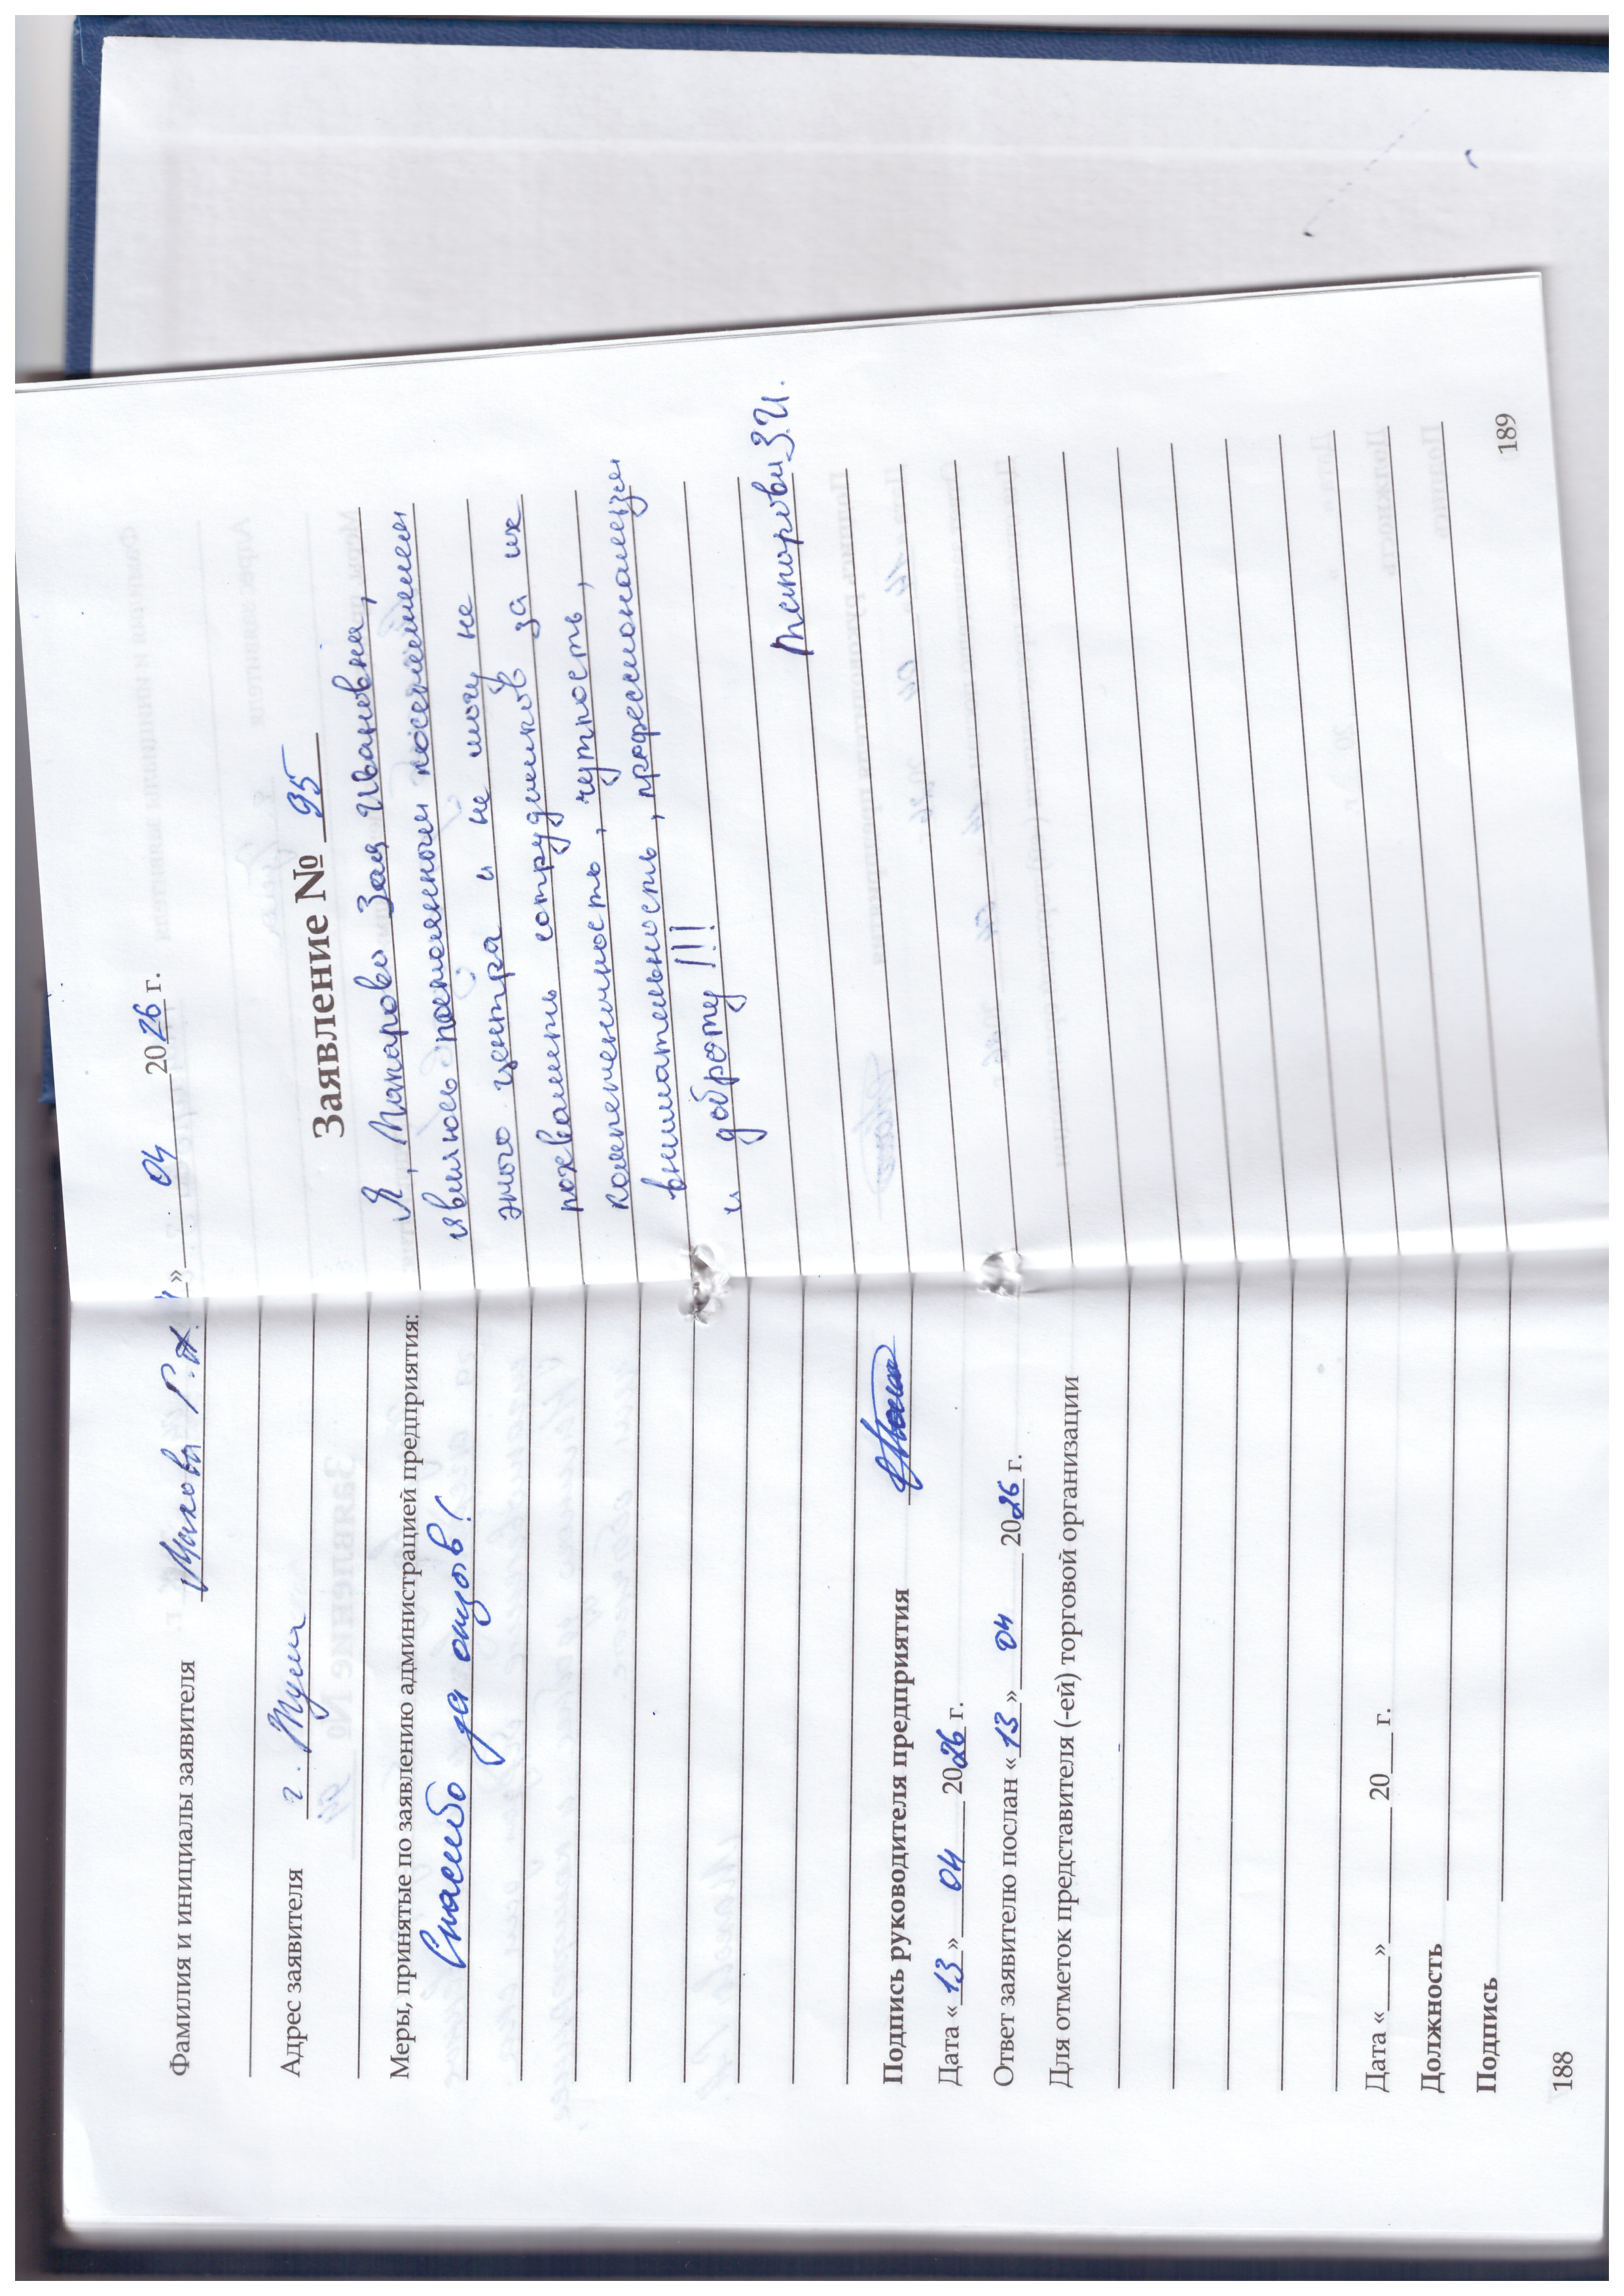 Фамилия и инициалы заявителя
Адрес заявителя г. Тула
Меры, принятые по заявлению администрацией предприятия:
Спасибо за отзыв!
Подпись руководителя предприятия
Дата «13» 04 2026 г.
Ответ заявителю послан «13» 04 2026 г.
Для отметок представителя (-ей) торговой организации
Дата «    »    20    г.
Должность
Подпись
188
» 04 2026 г.
Заявление № 95
Я, Ивановна,
являюсь постоянным посетителем
этого центра и не могу не
похвалить сотрудников за их
компетентность, чуткость,
внимательность, профессионализм
и доброту!!!
З.И.
189